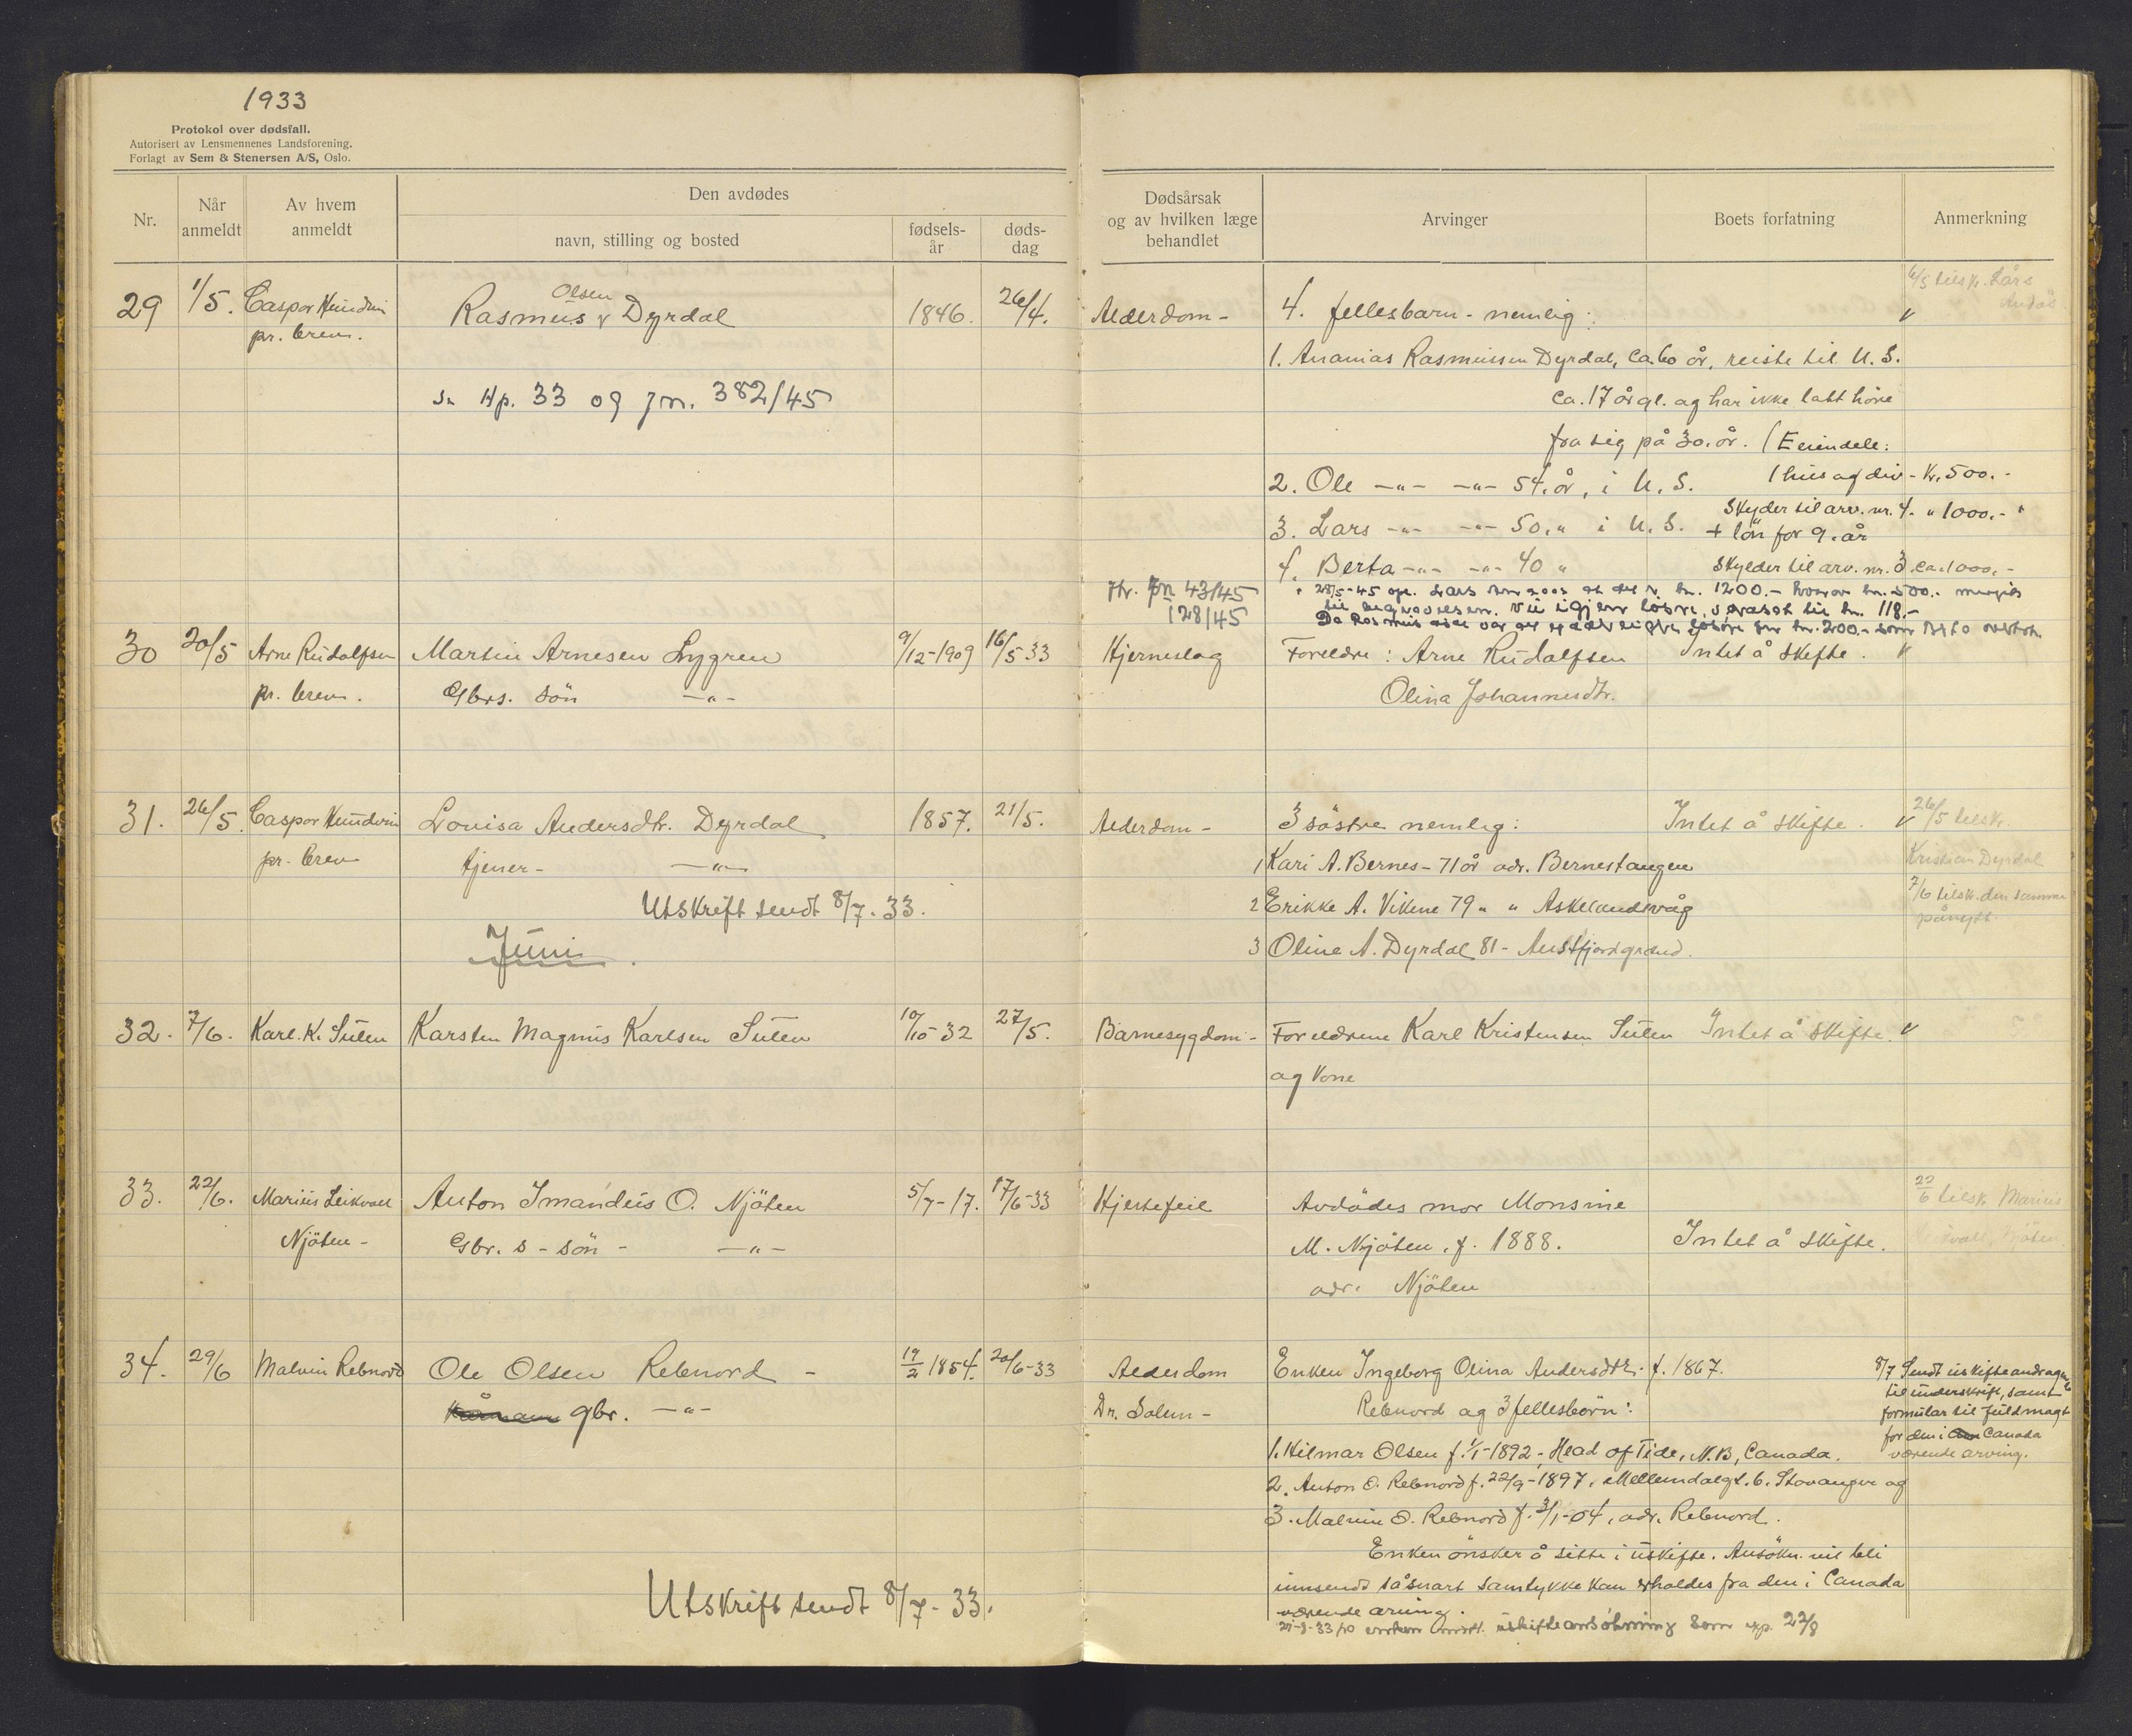 1933
Protokol over dødsfall.
Autorisert av Lensmennenes Landsforening.
Forlagt av Sem & Stenersen A/S, Oslo.
Nr.
Når anmeldt
Av hvem anmeldt
Den avdødes
navn, stilling og bosted
fødsels-år
døds-dag
Dødsårsak og av hvilken læge behandlet
Arvinger
Boets forfatning
Anmerkning
29 1/5. Caspar Hundvin Rasmus Olsen Dyrdal 1846. 26/4. Alderdom - 4. fellesbarn - nemlig: 6/5 tilskr. Lars
pr. brev.
1. Ananias Rasmussen Dyrdal, ca. 60 år, reiste til U.S.
Hp. 33 og jn. 382/45
ca. 17 år gl. og har ikke latt høre
fra sig på 30. år. (Eiendele:
2. Ole -"- -"- 54. år, i U.S. 1 hus og div - Kr. 500.-
Skyder til arv. nr. 4. " 1000.-
3. Lars -"- -"- 50. " i U.S. + løn for 9. år
4. Berta -"- -"- 40 " Skylder til arv. nr. 3. ca. 1000.-
jn 43/45
128/45
28/5-45 Lars kr. 1200.- hvorav kr. 500.-
til begravelsen. kr. 118.-
Da Rasmus døde var kr. 200.- som
30 20/5 Arne Rudolfsen Martin Arnesen Lygren 9/12-1909 16/5 33 Hjerneslag Foreldre: Arne Rudolfsen Intet å skifte.
pr. brev. Gbrs. søn -"- Olina Johannesdtr.
31. 26/5. Caspar Hundvin Lovisa Andersdtr. Dyrdal 1857. 21/5. Alderdom - 3 søstre nemlig: Intet å skifte. 26/5 tilskr.
pr. brev tjener - -"- 1 Kari A. Bernes - 71 år adr. Bernestangen Kristian Dyrdal
Utskrift sendt 8/7-33. 2 Erikke A. Vikene 79 " " Askelandsvåg 7/6 tilsk. den samme
pånytt.
Juni. 3 Oline A. Dyrdal 81 - Austfjordgrend.
32. 7/6. Karl. K. Sulen Karsten Magnus Karlsen Sulen 10/10-32 27/5. Barnesygdom - Foreldrene Karl Kristensen Sulen Intet å skifte.
og kone
33. 22/6. Marius Leikvoll Anton Imandeus O. Njøten 5/7-17. 17/6-33 Hjertefeil Avdødes mor Monsine 22/6 tilsk. Marius
Njøten - Gbr. s - søn - -"- M. Njøten, f. 1888. Intet å skifte. Leikvoll, Njøten.
adr. Njøten
34. 29/6 Malvin Rebnord Ole Olsen Rebnord - 19/2 1854. 20/6-33 Alderdom Enken Ingeborg Olina Andersdtr. f. 1867. 8/7 Sendt uskifteandragende
gbr. -"- Dr. Solem - Rebnord og 3 fellesbørn: til underskrift, samt
formular til fuldmagt
for den i Canada
1. Hilmar Olsen f. 1/1-1892 - Head of Tide, N.B, Canada. værende arving.
2. Anton O. Rebnord f. 22/9-1897, Mellemdalgt. 6. Stavanger og
3. Malvin O. Rebnord f. 3/1-04, adr. Rebnord.
Enken ønsker å sitte i uskifte. Ansøkn. vil bli
innsendt såsnart samtykke kan erholdes fra den i Canada
værende arving.
Utskrift sendt 8/7-33.
21-8-33 enken uskifteansøkning som exp. 22/8